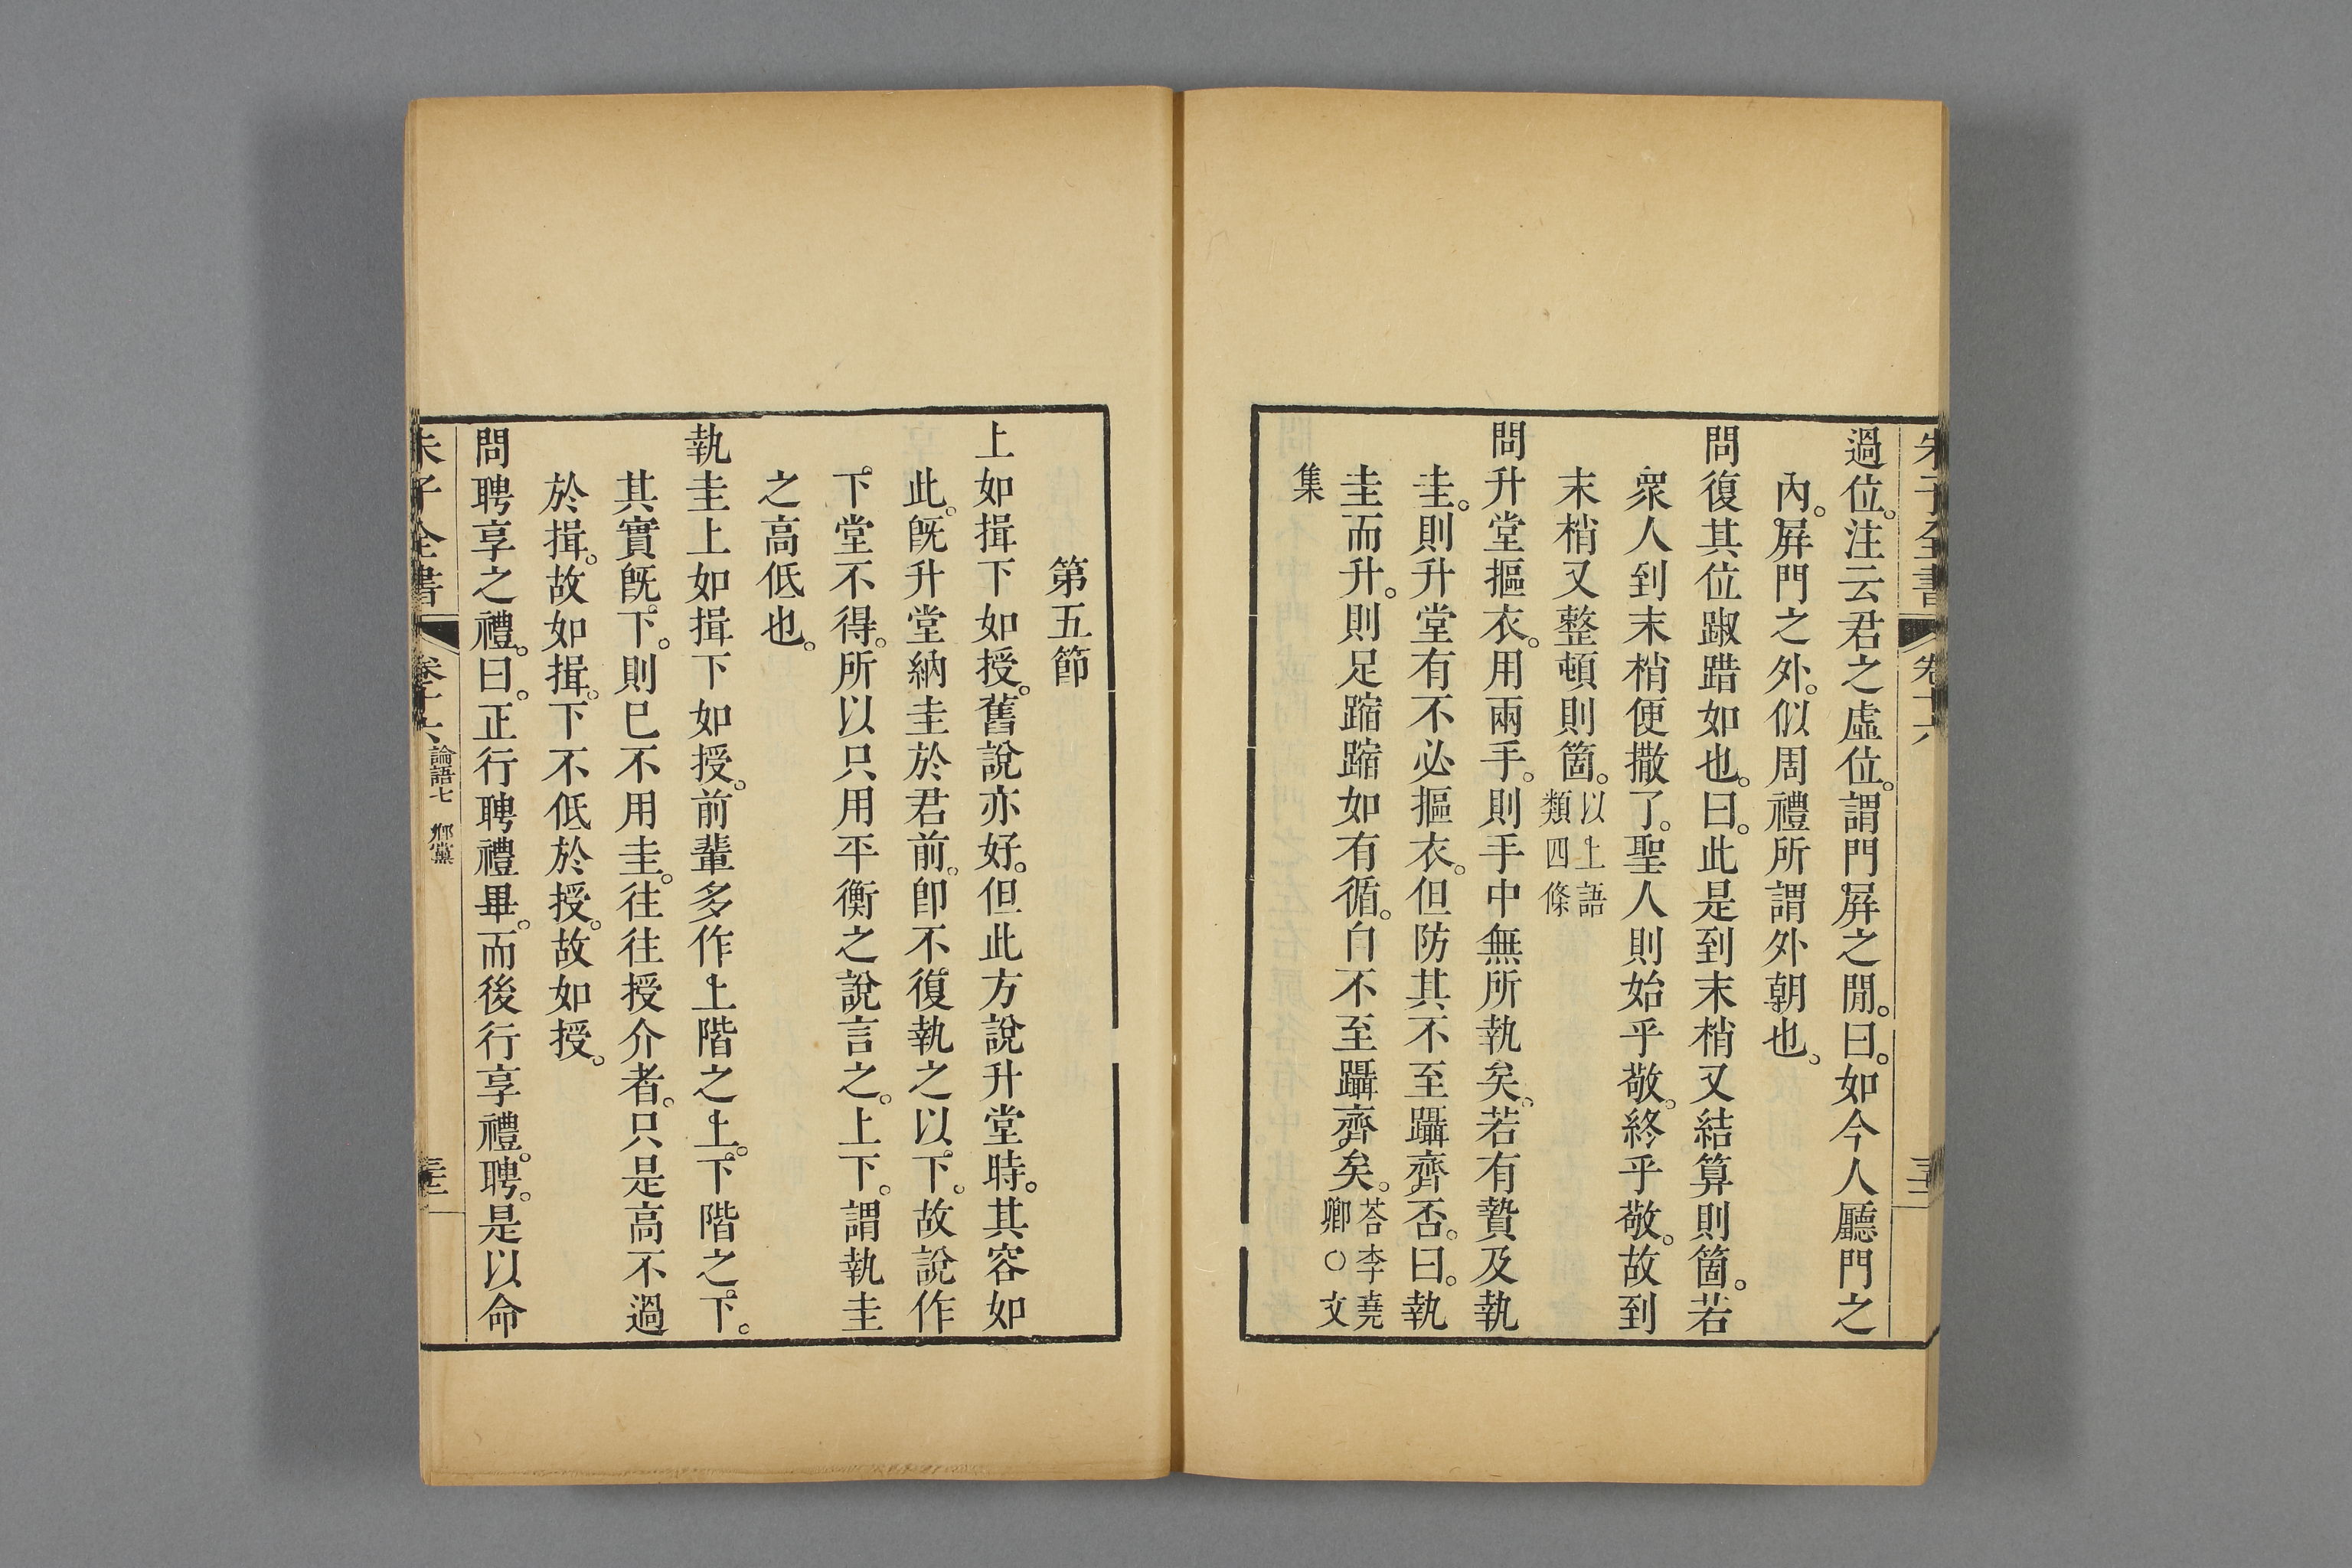 朱子全書 卷十六
過位。注云君之虛位。謂門屏之閒。曰。如今人廳門之
內。屏門之外。似周禮所謂外朝也。
問復其位踧踖如也。曰。此是到末梢又結算則箇。若
衆人到末梢便撒了。聖人則始乎敬。終乎敬。故到
末梢又整頓則箇。以上語類四條
問升堂摳衣。用兩手。則手中無所執矣。若有贄及執
圭。則升堂有不必摳衣。但防其不至躡齊否。曰。執
圭而升。則足蹜蹜如有循。自不至躡齊矣。荅李堯卿○文
集
第五節
上如揖下如授。舊說亦好。但此方說升堂時。其容如
此。旣升堂納圭於君前。卽不復執之以下。故說作
下堂不得。所以只用平衡之說言之。上下。謂執圭
之高低也。
執圭上如揖下如授。前輩多作上階之上。下階之下。
其實旣下。則已不用圭。往往授介者。只是高不過
於揖。故如揖。下不低於授。故如授。
問聘享之禮。曰。正行聘禮畢。而後行享禮。聘。是以命
朱子全書 卷十六 論語七 鄉黨